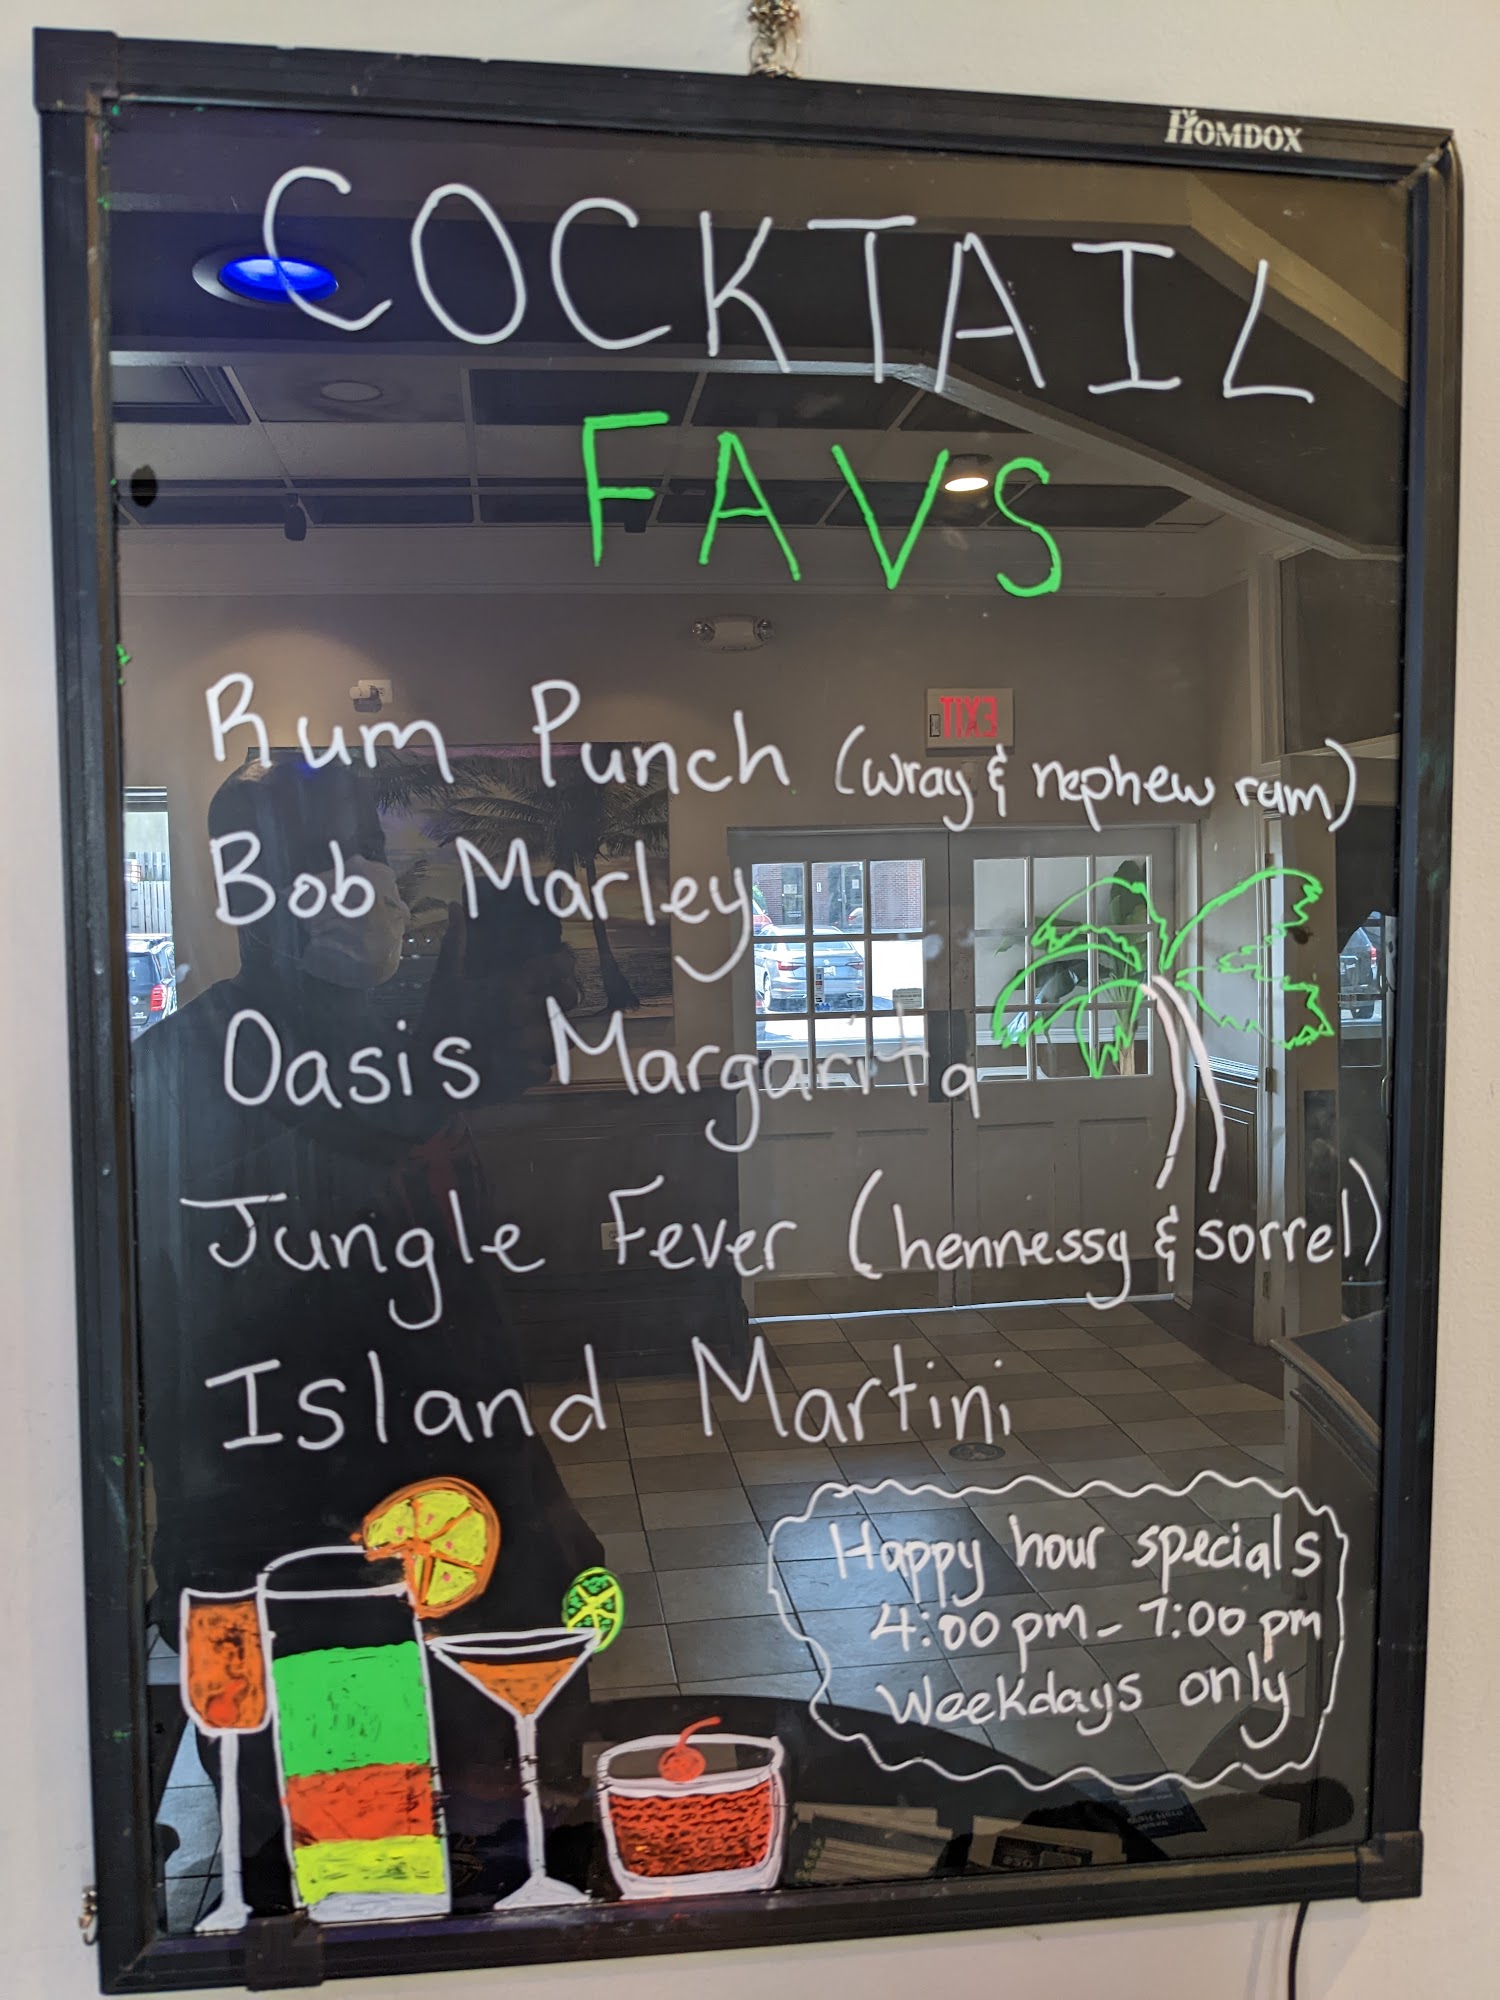 HOMDOX
COCKTAIL
FAVS
Rum Punch (wray & nephew rum)
Bob Marley
Oasis Margarita
Jungle Fever (hennessy & sorrel)
Island Martini
Happy hour specials
4:00 pm - 7:00 pm
Weekdays only
EXIT